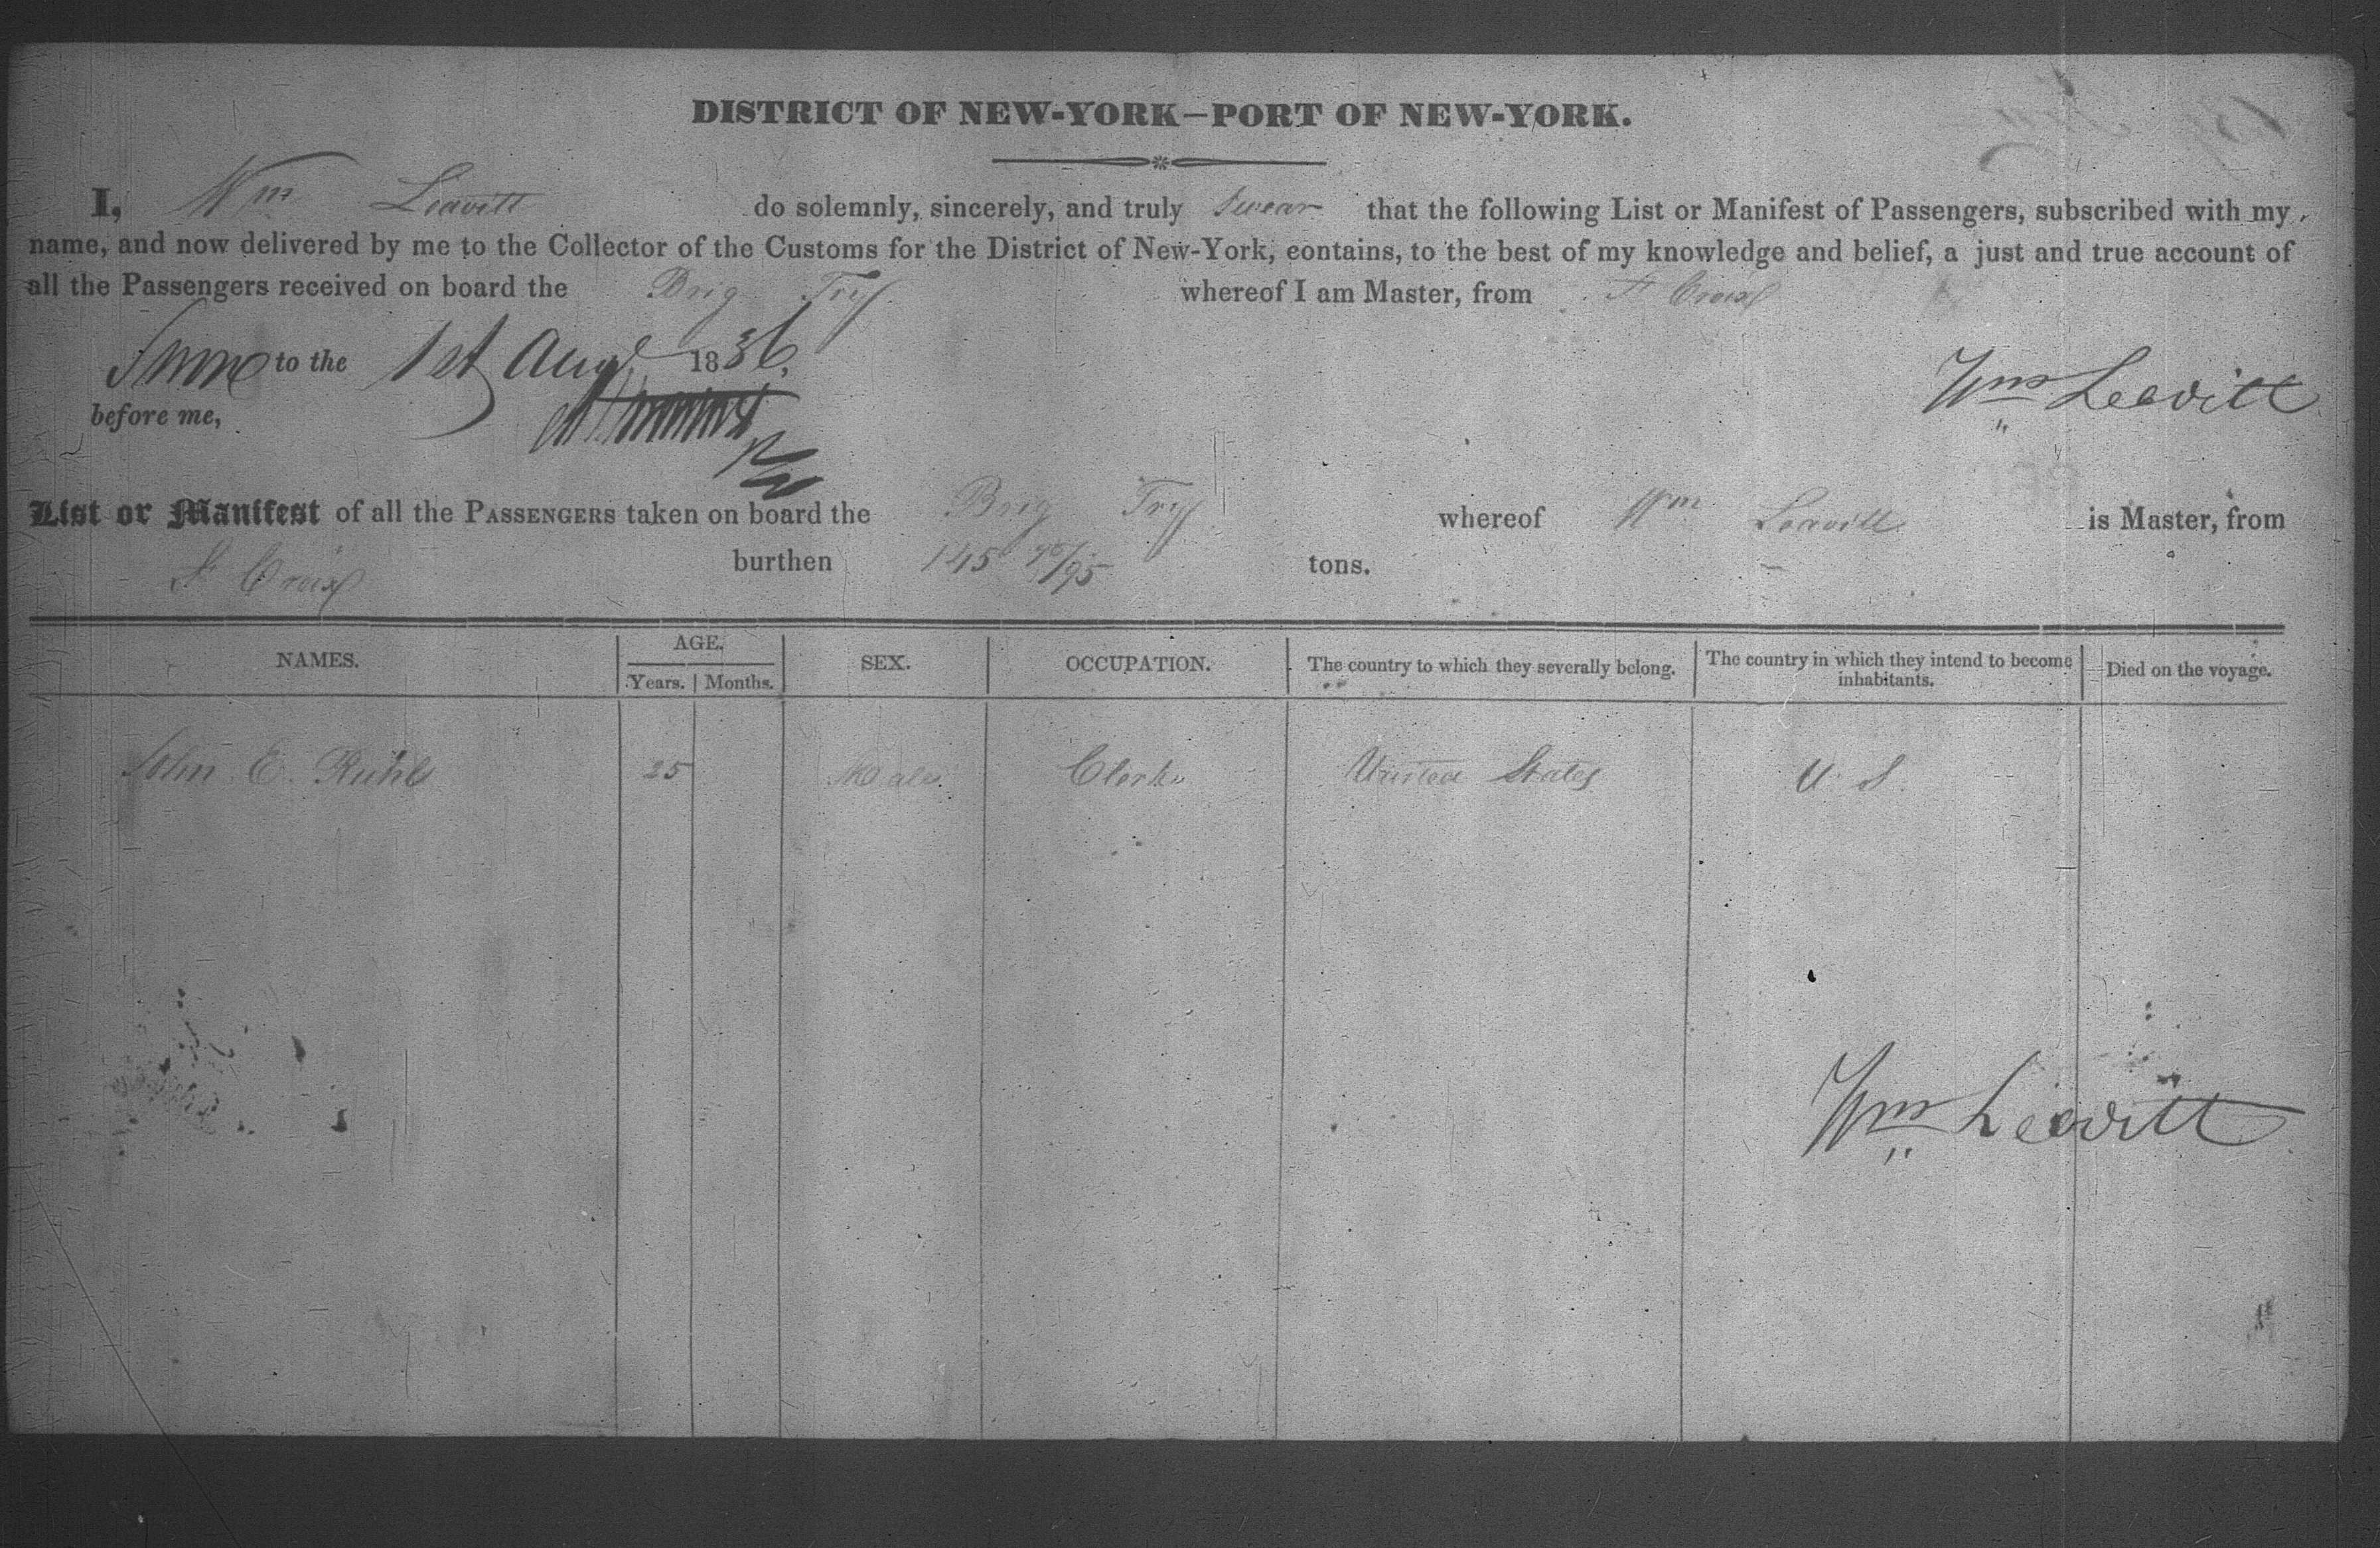 DISTRICT OF NEW-YORK—PORT OF NEW-YORK.
I, Wm Leavitt do solemnly, sincerely, and truly swear that the following List or Manifest of Passengers, subscribed with my
name, and now delivered by me to the Collector of the Customs for the District of New-York, contains, to the best of my knowledge and belief, a just and true account of
all the Passengers received on board the Brig Try whereof I am Master, from St Croix
Sworn to the 1st Augt 1836.
before me,
Wm Leavitt
List or Manifest of all the PASSENGERS taken on board the Brig Try whereof Wm Leavitt is Master, from
St Croix burthen 145 /95 tons.
NAMES. AGE. Years. Months. SEX. OCCUPATION. The country to which they severally belong. The country in which they intend to become inhabitants. Died on the voyage.
John E. Ruhl 25 Male. Clerk United States U. S.
Wm Leavitt